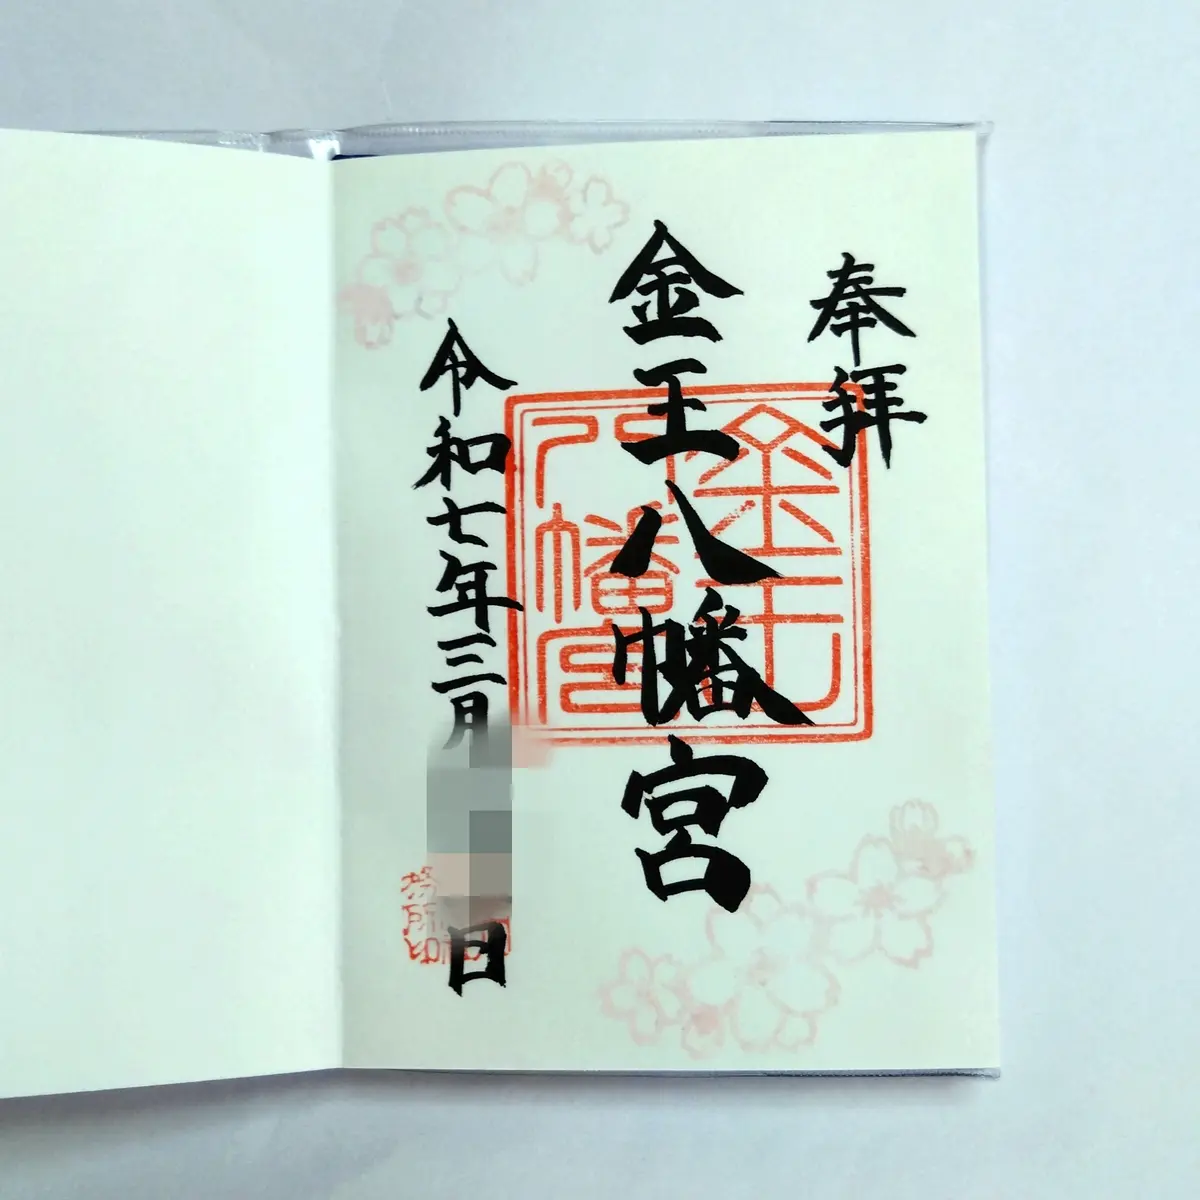 奉拝
金王八幡宮
金王八幡宮
令和七年三月
日